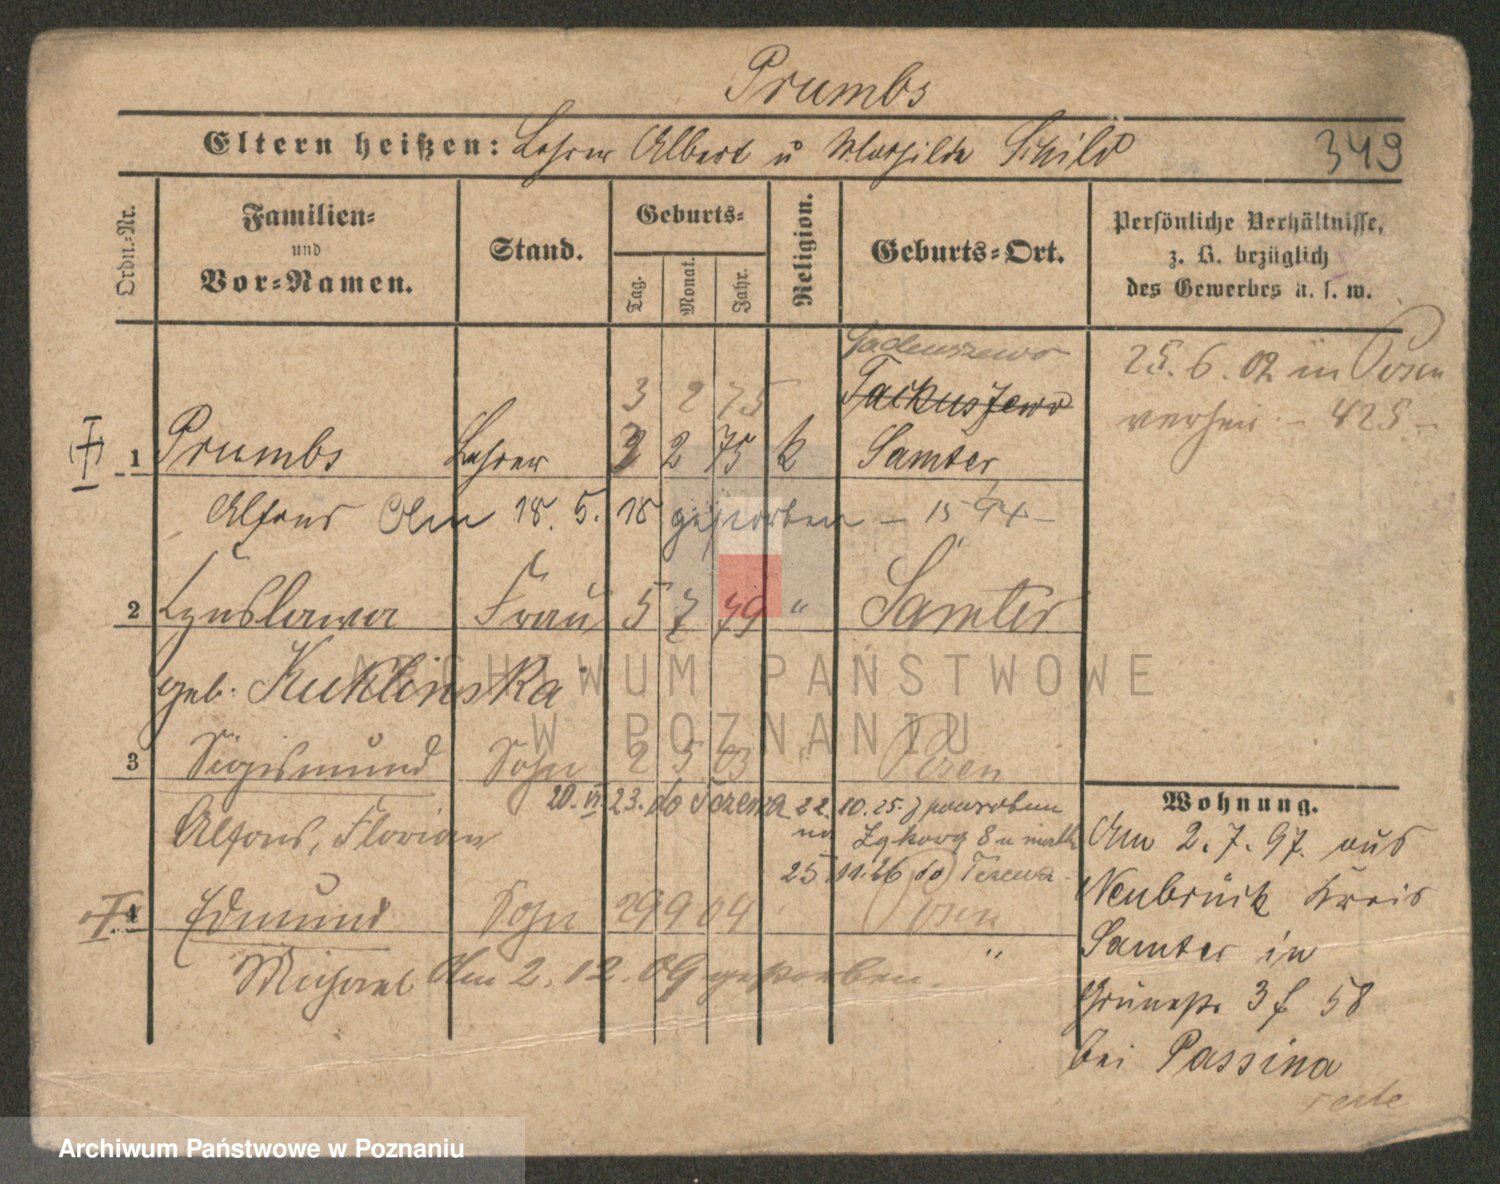 Prumbs
Eltern heißen: Lehrer Albert u Mathilde Schild 349
Ordn.-Nr.
Familien-
und
Vor-Namen.
Stand.
Geburts-
Tag. Monat. Jahr.
Religion.
Geburts-Ort.
Persönliche Verhältnisse,
z. B. bezüglich
des Gewerbes u. s. w.
3 2 75
25. 6. 02 in Posen
verhei – 425 –
1 Prumbs Lehrer 2 75 k Samter
Alfons Am 18. 5. 18 gestorben –
2 Frau 5 7 79 " Samter
geb. Kuklinska
3 Sigismund Sohn 2 5 03 Posen
20. VI 23. do Tczewa 22. 10. 25. z powrotem
Alfons, Florian
na
25. 11. 26 do Tczewa
4 Edmund Sohn 29 9 04 Posen
Michael Am 2. 12. 09 gestorben. "
Wohnung.
Am 2. 7. 97. aus
Neubrück Kreis
Samter in
Grünestr 3 f 58
bei Passina
ARCHIWUM PAŃSTWOWE
W POZNANIU
Archiwum Państwowe w Poznaniu